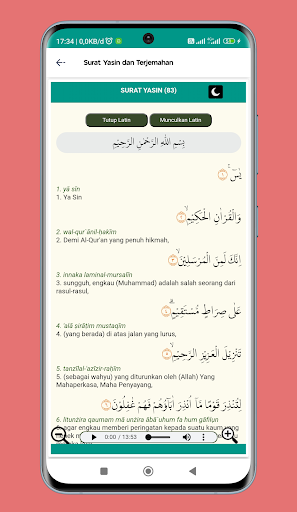 17:34 | 0,0KB/d
Surat Yasin dan Terjemahan
SURAT YASIN (83)
Tutup Latin
Munculkan Latin
بِسْمِ اللّٰهِ الرَّحْمٰنِ الرَّحِيْمِ
يٰسۤ ۚ ١
1. yā sīn
1. Ya Sin
وَالْقُرْاٰنِ الْحَكِيْمِۙ ٢
2. wal-qur`ānil-ḥakīm
2. Demi Al-Qur'an yang penuh hikmah,
اِنَّكَ لَمِنَ الْمُرْسَلِيْنَۙ ٣
3. innaka laminal-mursalīn
3. sungguh, engkau (Muhammad) adalah salah seorang dari
rasul-rasul,
عَلٰى صِرَاطٍ مُّسْتَقِيْمٍۗ ٤
4. 'alā ṣirāṭim mustaqīm
4. (yang berada) di atas jalan yang lurus,
تَنْزِيْلَ الْعَزِيْزِ الرَّحِيْمِۙ ٥
5. tanzīlal-'azīzir-raḥīm
5. (sebagai wahyu) yang diturunkan oleh (Allah) Yang
Mahaperkasa, Maha Penyayang,
لِتُنْذِرَ قَوْمًا مَّآ اُنْذِرَ اٰبَاۤؤُهُمْ فَهُمْ غٰفِلُوْنَ ٦
6. litunżira qaumam mā unżira ābā`uhum fa hum gāfilụn
6. agar engkau memberi peringatan kepada suatu kaum yang
0:00 / 13:53